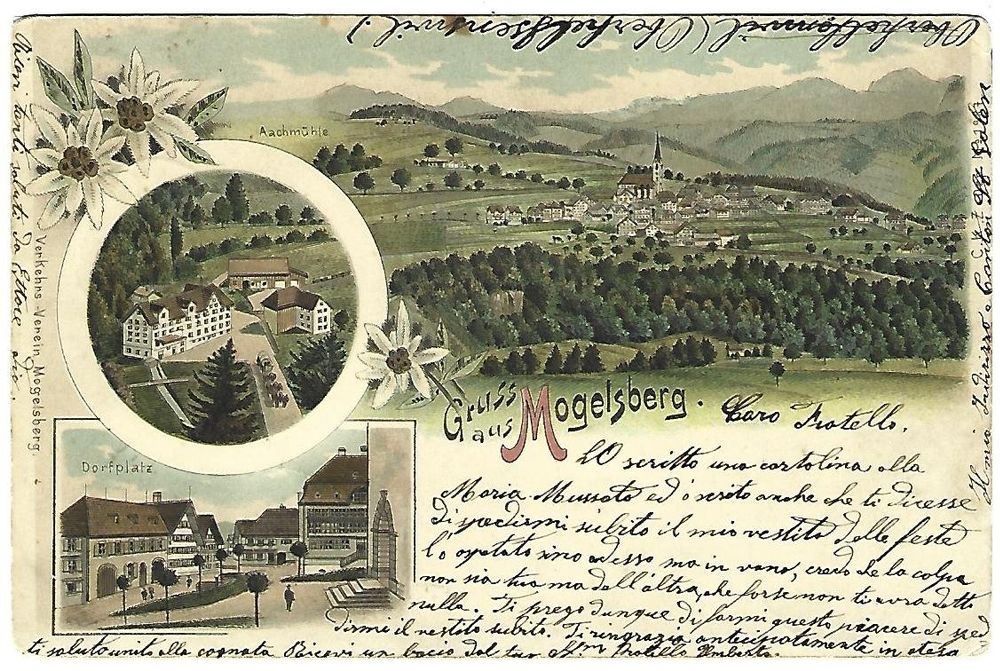 Oberhelfenswil (Oberhelfenswil.)
Aachmühle
Verkehrs-Verein Mogelsberg.
Gruss aus Mogelsberg.
Dorfplatz
Caro Fratello,
ò scritto una cartolina alla
Maria Mussato ed ò scrito anche che ti dicesse
di spedirmi subito il mio vestito delle feste
l'ò aspetato sino adesso ma in vano, credo che la colpa
non sia tua ma dell'altra, che forse non ti avra detto
nulla. Ti prego dunque di farmi questo piacere di sped
dirmi il vestito subito. Ti ringrazio anticipatamente in atesa
ti saluto unito alla cognata un bacio dal tuo Fratello Umberto.
Il mio Indirizo Canton St Galen
tanti saluti da Ettore